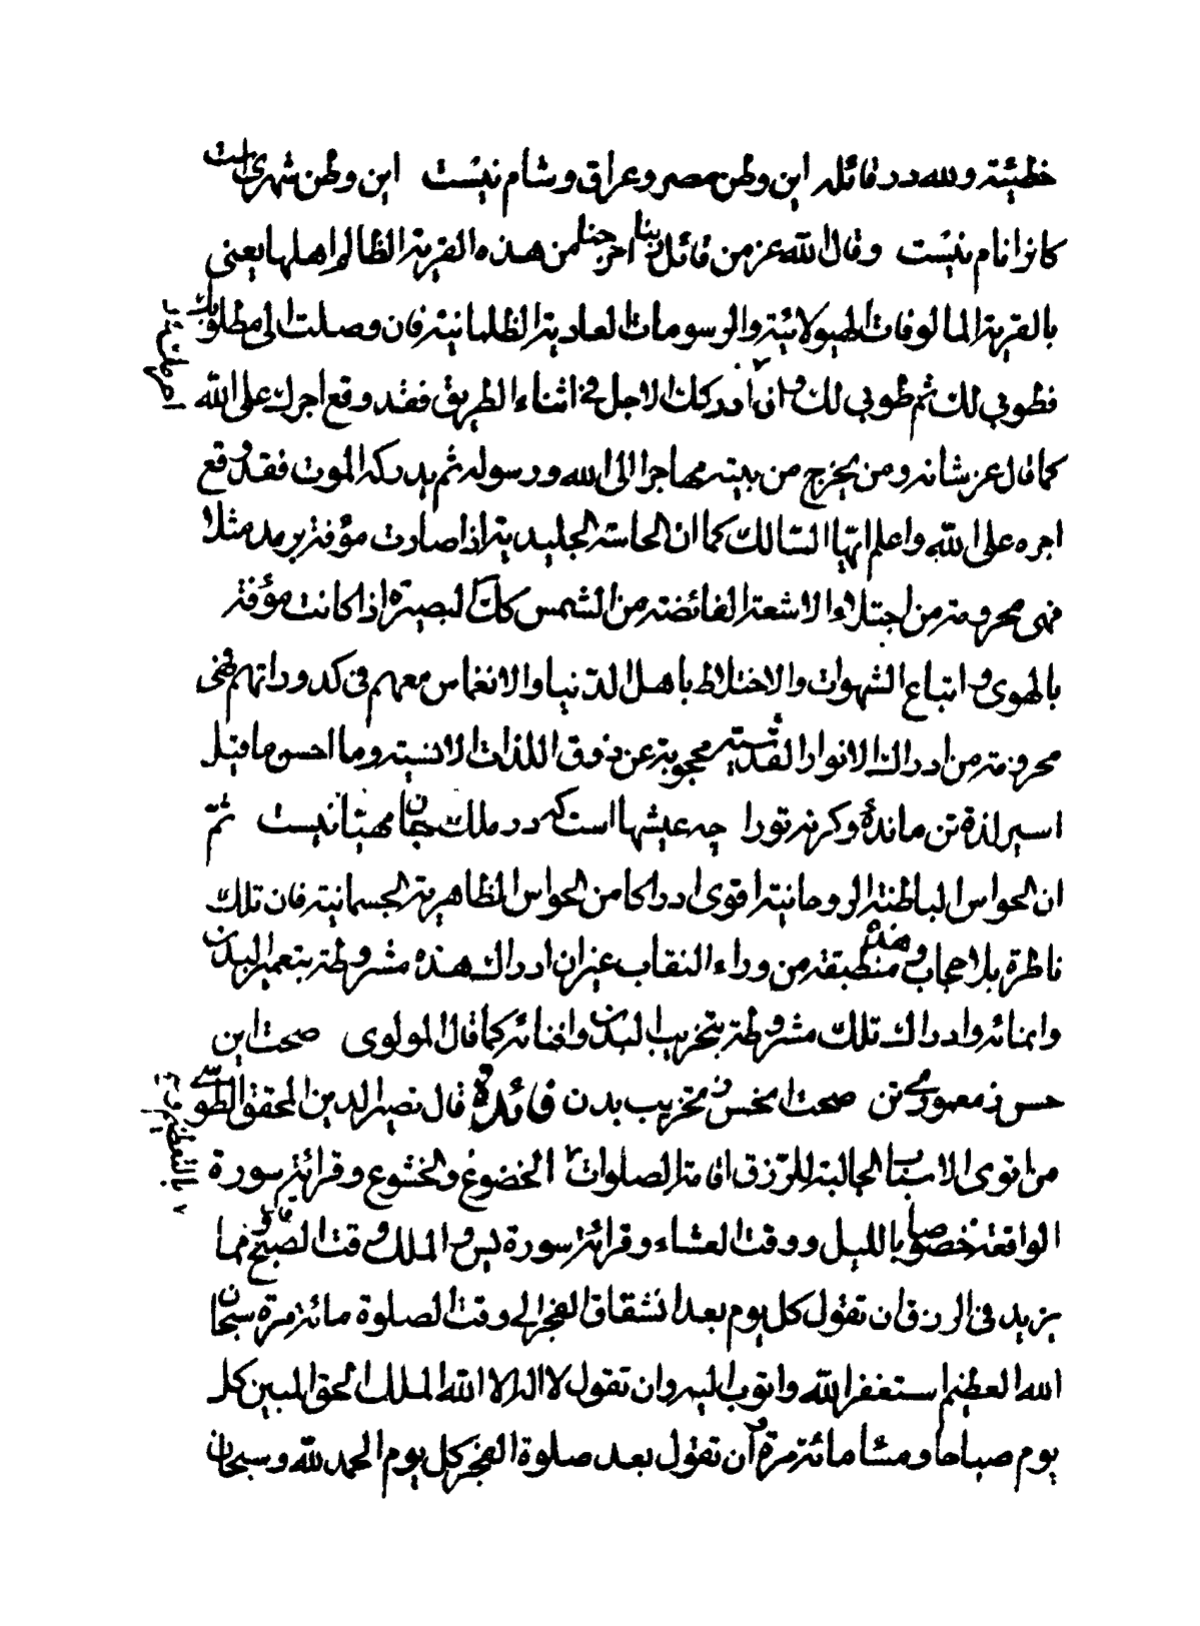 خطيئة ولله در قائله اين وطن مصر وعراق وشام نيست اين وطن شهريست
كانرا نام نيست وقال الله عز من قائل ربنا اخرجنا من هذه القرية الظالم اهلها يعنى
بالقرية المالوفات الهيولائية والرسومات العادية الظلمانية فان وصلت الى مطلوبك
فطوبى لك ثم طوبى لك وان ادركك الاجل فى اثناء الطريق فقد وقع اجرك على الله
كما قال عز شانه ومن يخرج من بيته مهاجرا الى الله ورسوله ثم يدركه الموت فقد وقع
اجره على الله واعلم ايها السالك كما ان الحاسة الجليدية اذا صارت مؤفة برمد مثلا
فهى محرومة من اجتلاء الاشعة الفائضة من الشمس كك البصيرة اذا كانت مؤفة
بالهوى واتباع الشهوات والاختلاط باهل الدنيا والانغماس معهم فى كدوراتهم فهى
محرومة من ادراك الانوار القدسية محجوبة عن ذوق اللذات الانسية وما احسن ما قيل
اسير لذة تن مانده وكرنه تورا چه عيشها است كه در ملك جان مهيا نيست ثم
ان الحواس الباطنة الروحانية اقوى ادراكا من الحواس الظاهرية الجسمانية فان تلك
ناظرة بلا حجاب وهذه منطبقة من وراء النقاب غير ان ادراك هذه مشروطة بتعمير البدن
وانمائه وادراك تلك مشروطة بتخريب البدن وافنائه كما قال المولوى صحت اين
حس ز معمورى تن صحت انحس ز تخريب بدن فائدة قال نصير الدين المحقق الطوسى
من اقوى الاسباب الجالبة للرزق اقامة الصلوات الخضوع والخشوع وقرائة سورة
الواقعة خصوصا بالليل ووقت العشاء وقرائة سورة يس والملك وقت الصبح ومما
يزيد فى الرزق ان تقول كل يوم بعد انشقاق الفجر الى وقت الصلوة مائة مرة سبحان
الله العظيم استغفر الله واتوب اليه وان تقول لا اله الا الله الملك الحق المبين كل
يوم صباحا ومسأ مائة مرة وان تقول بعد صلوة الفجر كل يوم الحمد لله وسبحان
بالتعظيم